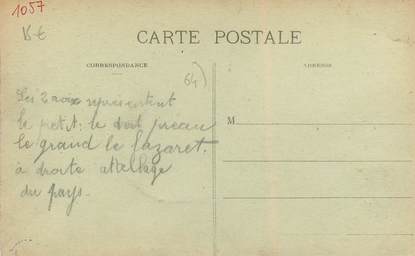 1057
15 €
CARTE POSTALE
CORRESPONDANCE
ADRESSE
64)
Les 2 croix représentent
le petit: le doit
le grand le lazaret.
M
à droite attelage
du pays.